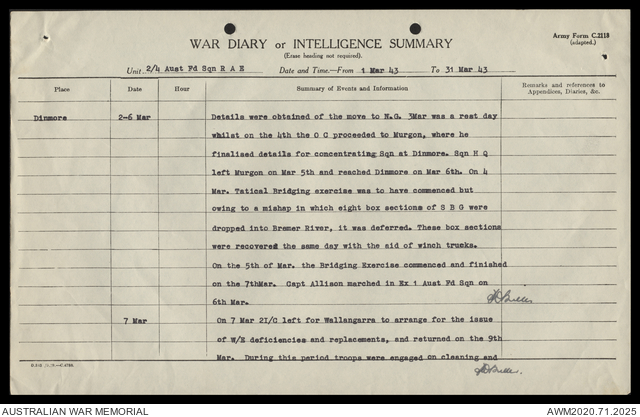 Army Form C.2118
(adapted.)
WAR DIARY or INTELLIGENCE SUMMARY
(Erase heading not required).
Unit 2/4 Aust Fd Sqn R A E Date and Time.—From 1 Mar 43 To 31 Mar 43
Place Date Hour Summary of Events and Information Remarks and references to Appendices, Diaries, &c.
Dinmore 2-6 Mar Details were obtained of the move to N.G. 3Mar was a rest day
whilst on the 4th the O C proceeded to Murgon, where he
finalised details for concentrating Sqn at Dinmore. Sqn H Q
left Murgon on Mar 5th and reached Dinmore on Mar 6th. On 4
Mar. Tatical Bridging exercise was to have commenced but
owing to a mishap in which eight box sections of S B G were
dropped into Bremer River, it was deferred. These box sections
were recovered the same day with the aid of winch trucks.
On the 5th of Mar. the Bridging Exercise commenced and finished
on the 7thMar. Capt Allison marched in Ex 1 Aust Fd Sqn on
6th Mar.
7 Mar On 7 Mar 2I/C left for Wallangarra to arrange for the issue
of W/E deficiencies and replacements, and returned on the 9th
Mar. During this period troops were engaged on cleaning and
AUSTRALIAN WAR MEMORIAL
AWM2020.71.2025